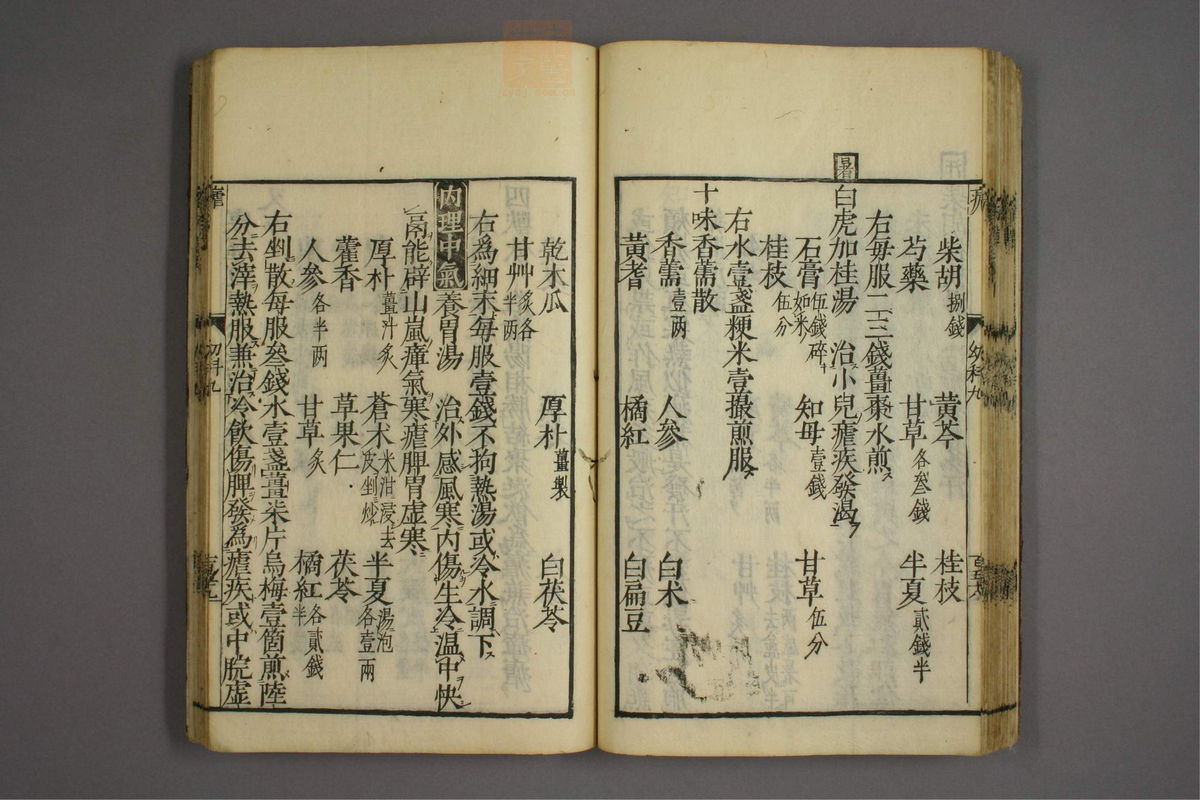 柴胡捌錢 黃芩 桂枝
芍藥 甘草各叁錢 半夏貳錢半
右每服二三錢薑棗水煎
暑
白虎加桂湯 治小兒瘧疾發渴
石膏伍錢碎如米 知母壹錢 甘草伍分
桂枝伍分
右水壹盞粳米壹撮煎服
十味香薷散
香薷壹两 人參 白朮
黃耆 橘紅 白扁豆
乾木瓜 厚朴薑製 白茯苓
甘艸炙各半两
右為細末每服壹錢不拘熱湯或冷水調下
内理中氣 養胃湯 治外感風寒内傷生冷温中快
鬲能辟山嵐瘴氣寒瘧脾胃虚寒
厚朴薑汁炙 蒼木米泔浸去皮剉炒 半夏湯泡各壹兩
藿香 草果仁 茯苓
人參各半两 甘草炙 橘紅各貳錢半
右剉散每服叁錢水壹盞薑柒片烏梅壹箇煎陸
分去滓熱服兼治冷飲傷脾發為瘧疾或中脘虚
幼科九